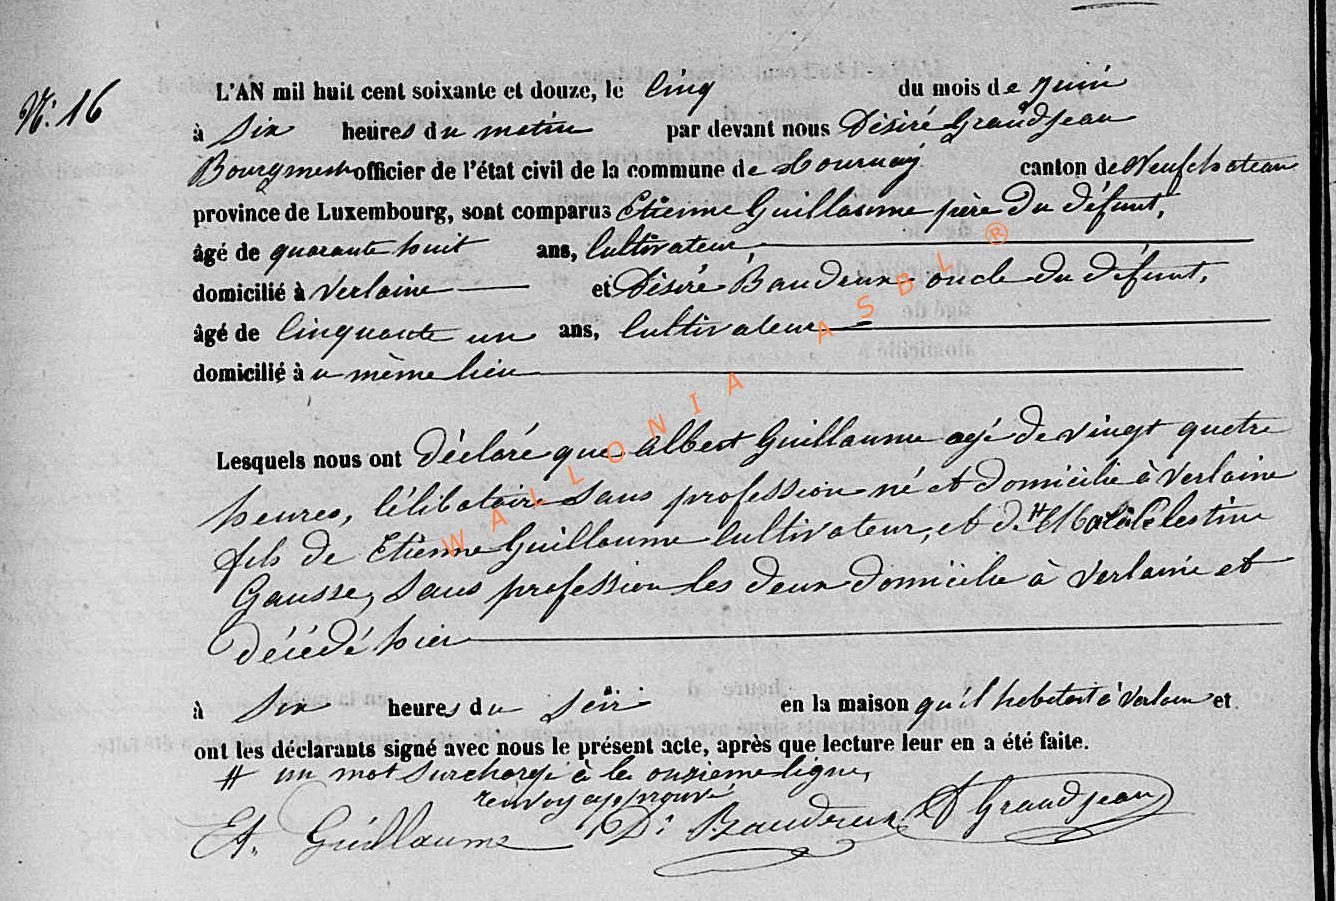 N.º 16
L'AN mil huit cent soixante et douze, le Cinq du mois de Juin
à Six heures du matin par devant nous Désiré Grandjean
Bourgmestre officier de l'état civil de la commune de Tournay canton de Neufchateau
province de Luxembourg, sont comparus Etienne Guillaume père du défunt,
âgé de quarante huit ans, Cultivateur
domicilié à Verlaine et Désiré Baudrux oncle du défunt,
âgé de Cinquante un ans, Cultivateur
domicilié à u même lieu
Lesquels nous ont déclaré que Albert Guillaume agé de vingt quatre
heures, Célibataire Sans profession né et domicilié à Verlaine
fils de Etienne Guillaume Cultivateur, et d. # Célestine
Gausse, Sans profession les deux domicilie à Verlaine et
décédé hier
à Six heures du Soir en la maison qu'il habetait à Verlaine et
ont les déclarants signé avec nous le présent acte, après que lecture leur en a été faite.
# un mot Surchargé à la onzieme ligne,
renvoy approuvé
Et. Guillaume Dé Baudrux D Grandjean
WALLONIA ASBL ®